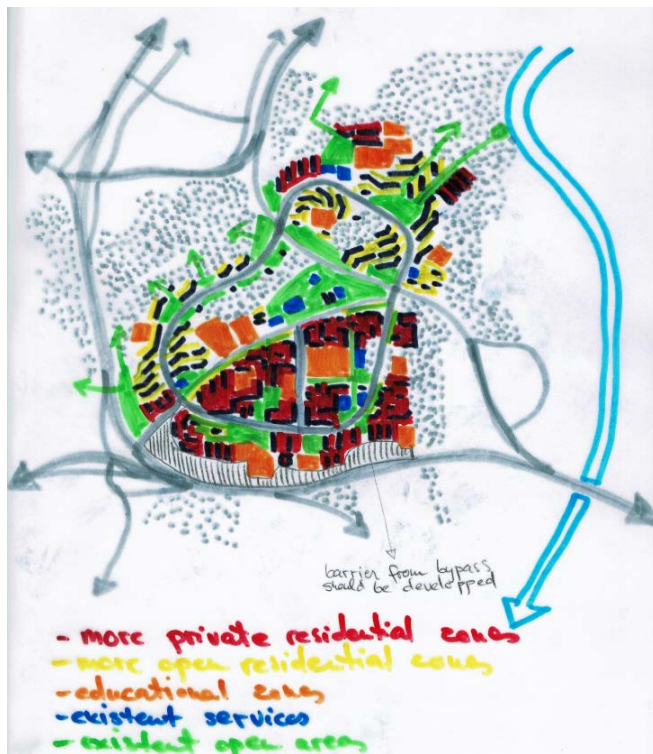 barrier from bypass
should be developped
- more private residential zones
- more open residential zones
- educational zones
- existent services
- existent open areas